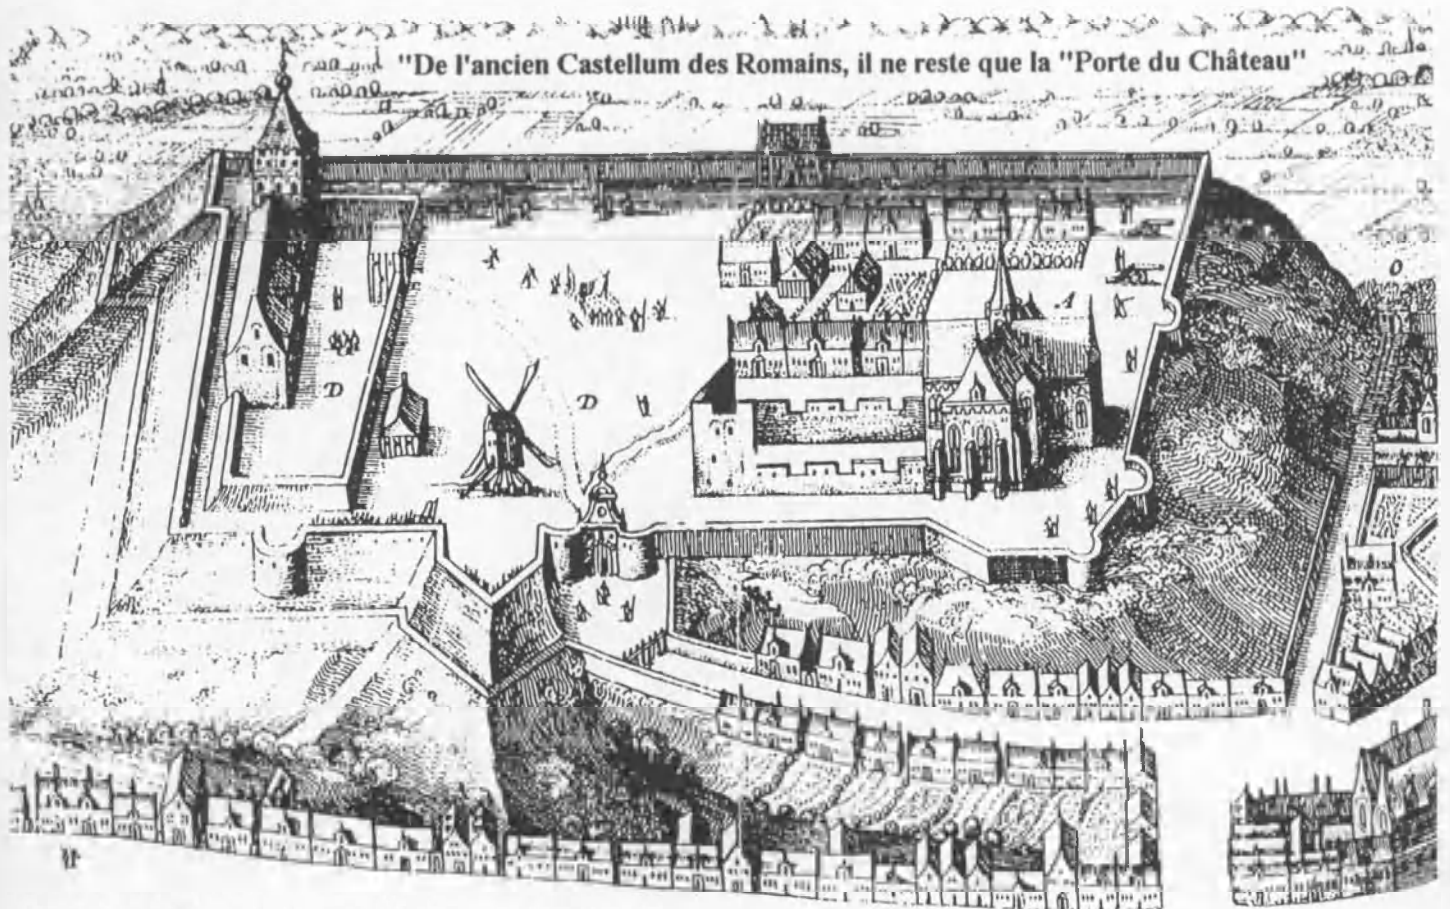 "De l'ancien Castellum des Romains, il ne reste que la "Porte du Château"
O
A
D
D